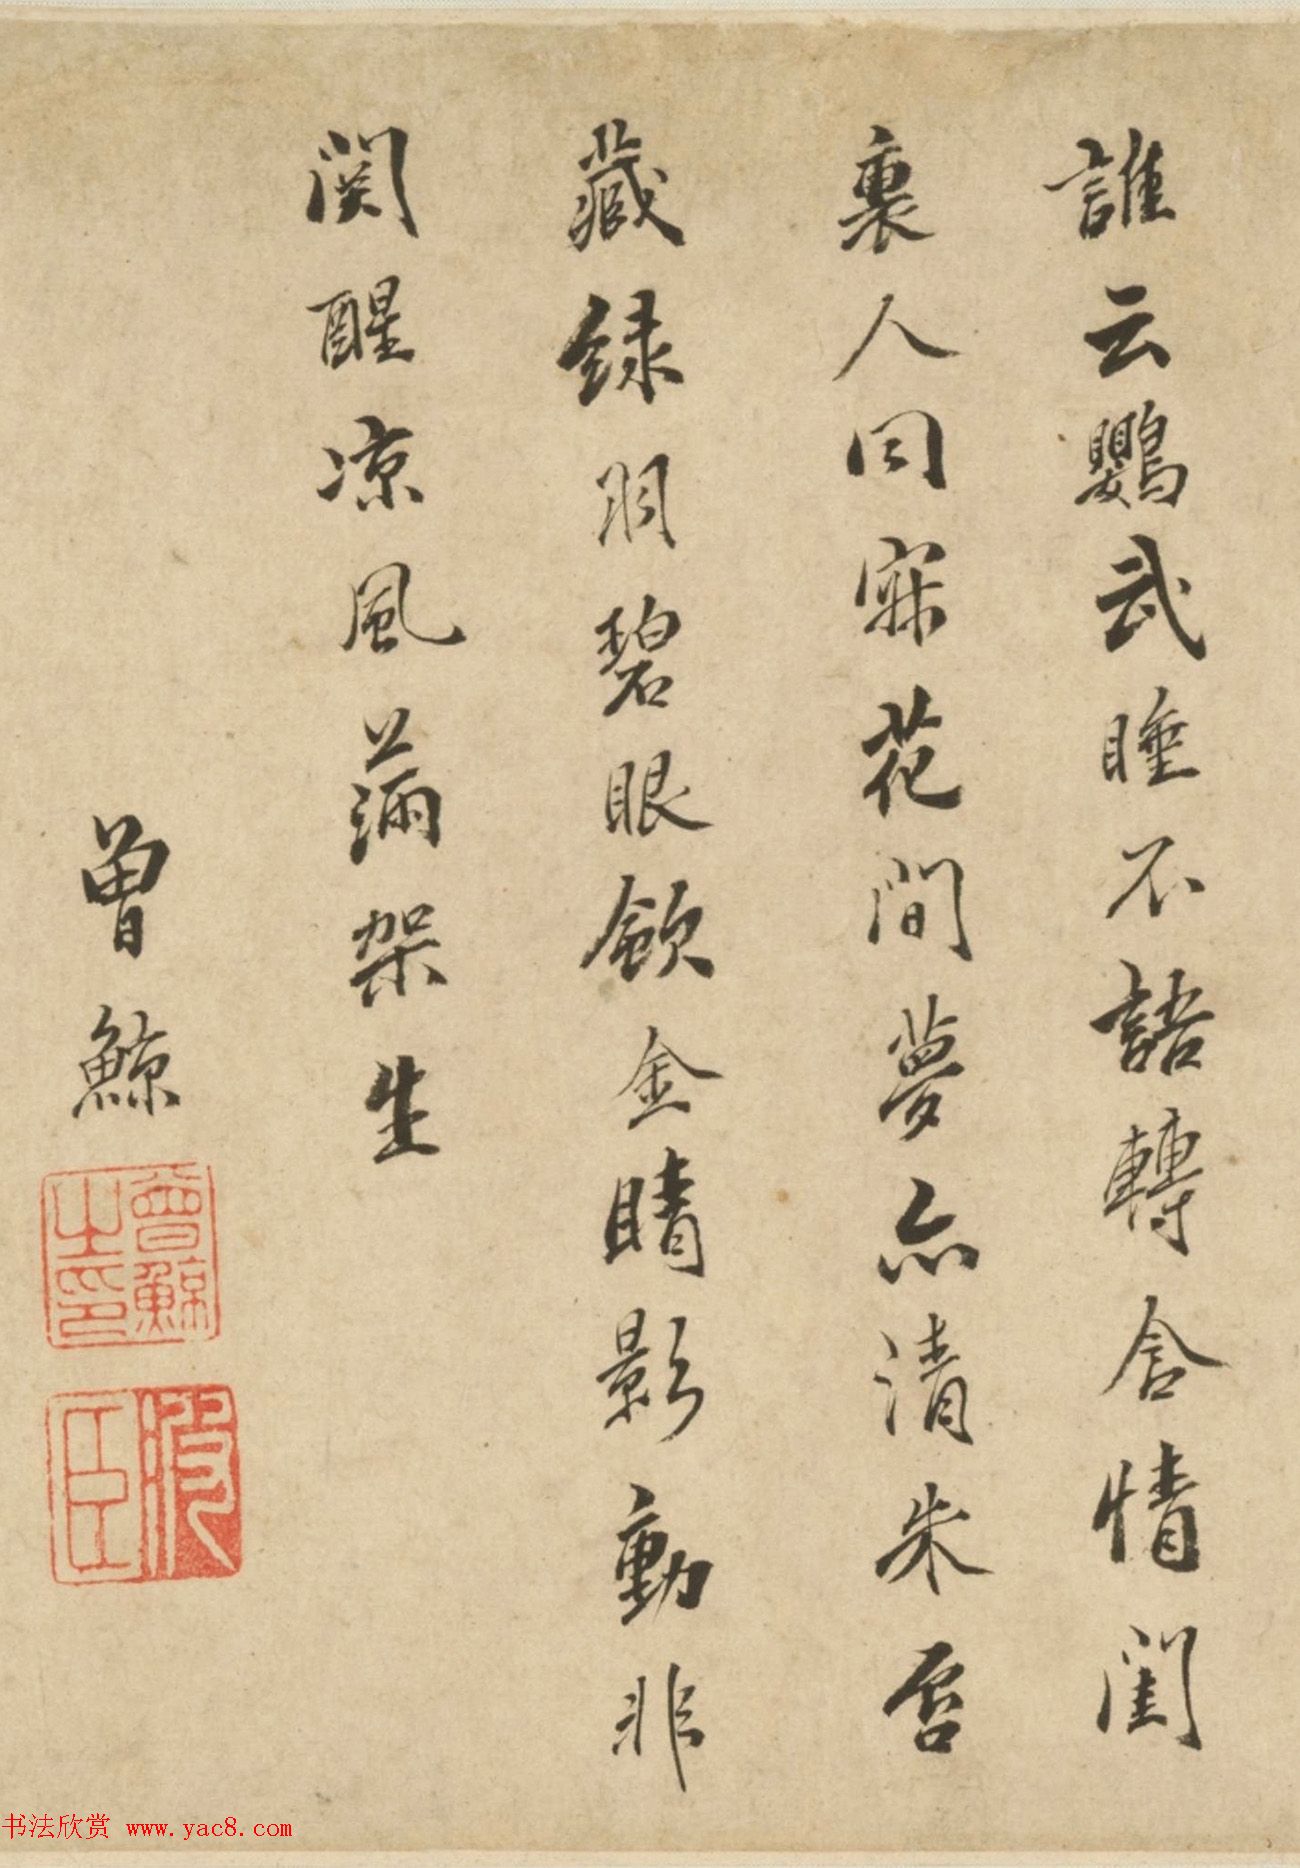 誰云鸚武睡不語轉含情閨
裏人同寐花間夢亦清朱唇
藏緑羽碧眼歛金睛影動非
関醒凉風滿架生
曾鯨
曾鯨之印
波臣
书法欣赏 www.yac8.com